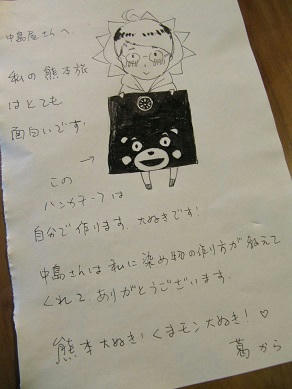 中島屋さんへ
私の熊本旅
はとても
面白いです!
この
ハンカチーフは
自分で作ります。大好きです!
中島さんは私に染め物の作り方が教えて
くれて、ありがとうございます。
熊本大好き!くまモン大好き!♡
葛から